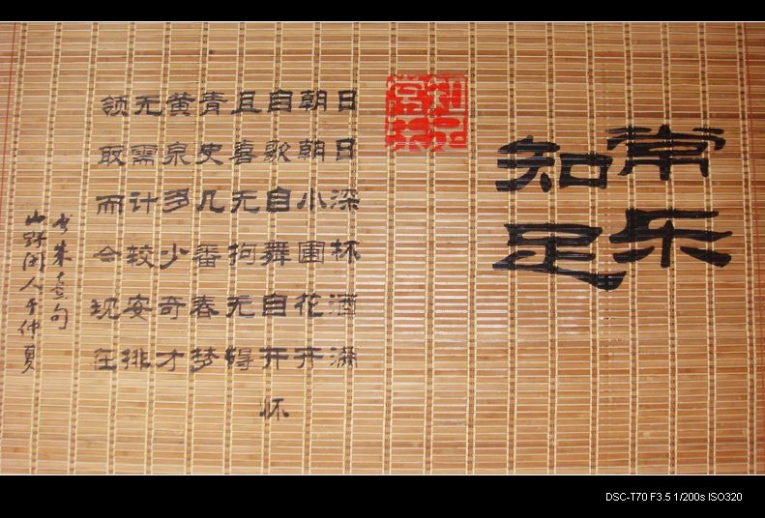 常乐
知足
日日深杯酒满
朝朝小圃花开
自歌自舞自开怀
且喜无拘无碍
青史几番春梦
黄泉多少奇才
无需计较安排
领取而今现在
书朱熹句
山野闲人于仲夏
DSC-T70 F3.5 1/200s ISO320